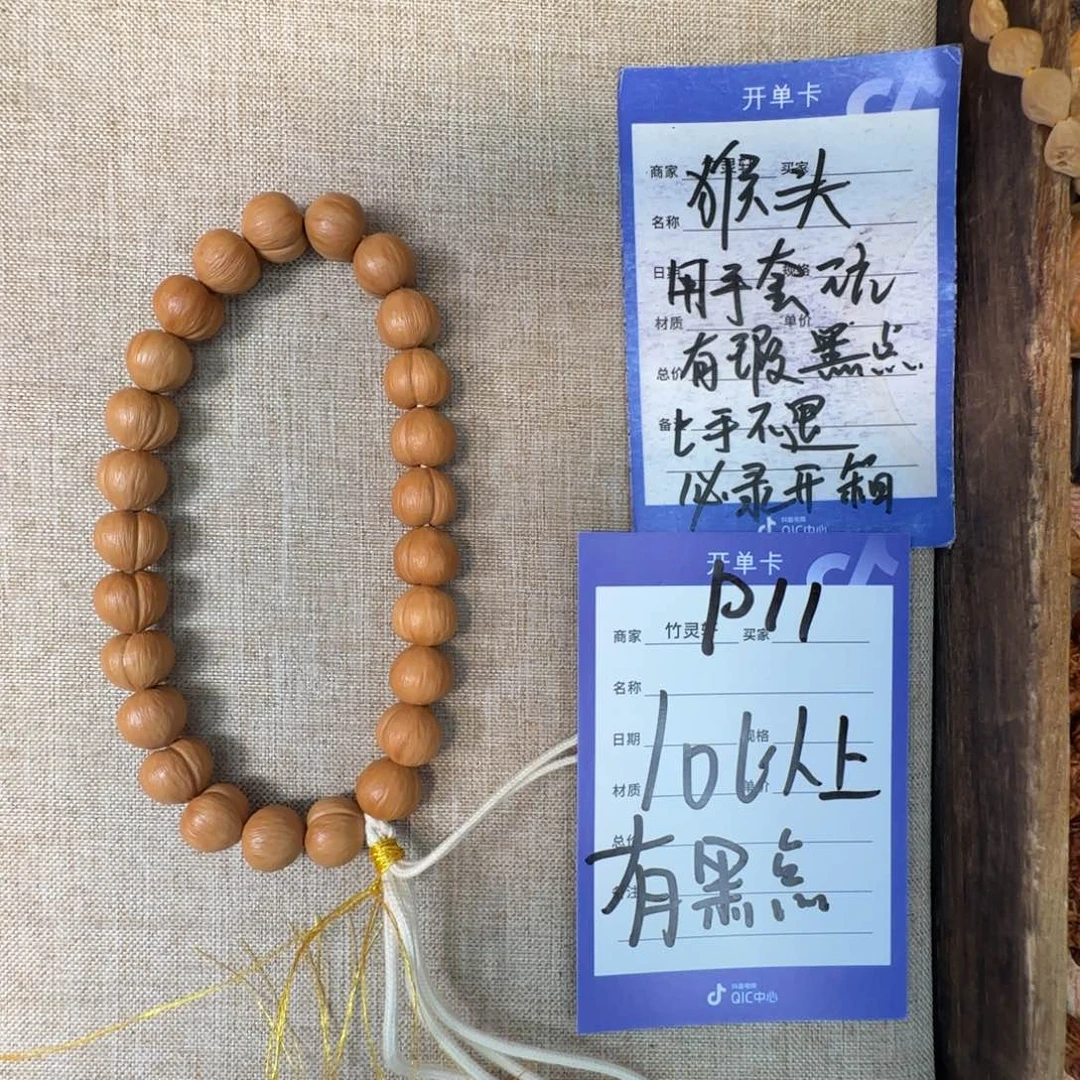 开单卡
商家 买家
猴头
名称
日期 规格
用手套玩
材质 单价
有瑕黑点
总价
备注
上手不退
必录开箱
抖音电商
QIC中心
开单卡
P11
商家 竹灵轩 买家
名称
日期 规格
10以上
材质 单价
总价
有黑点
备注
抖音电商
QIC中心